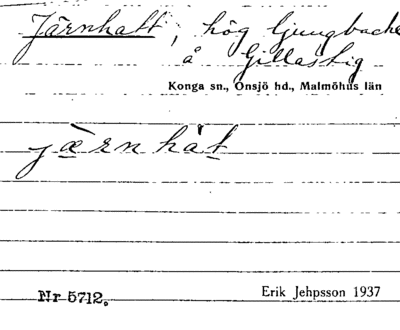 Järnhatt, hög ljungbacke
å Gillastig
Konga sn., Onsjö hd., Malmöhus län
jæ̀rnhát
Nr 5712.
Erik Jehpsson 1937